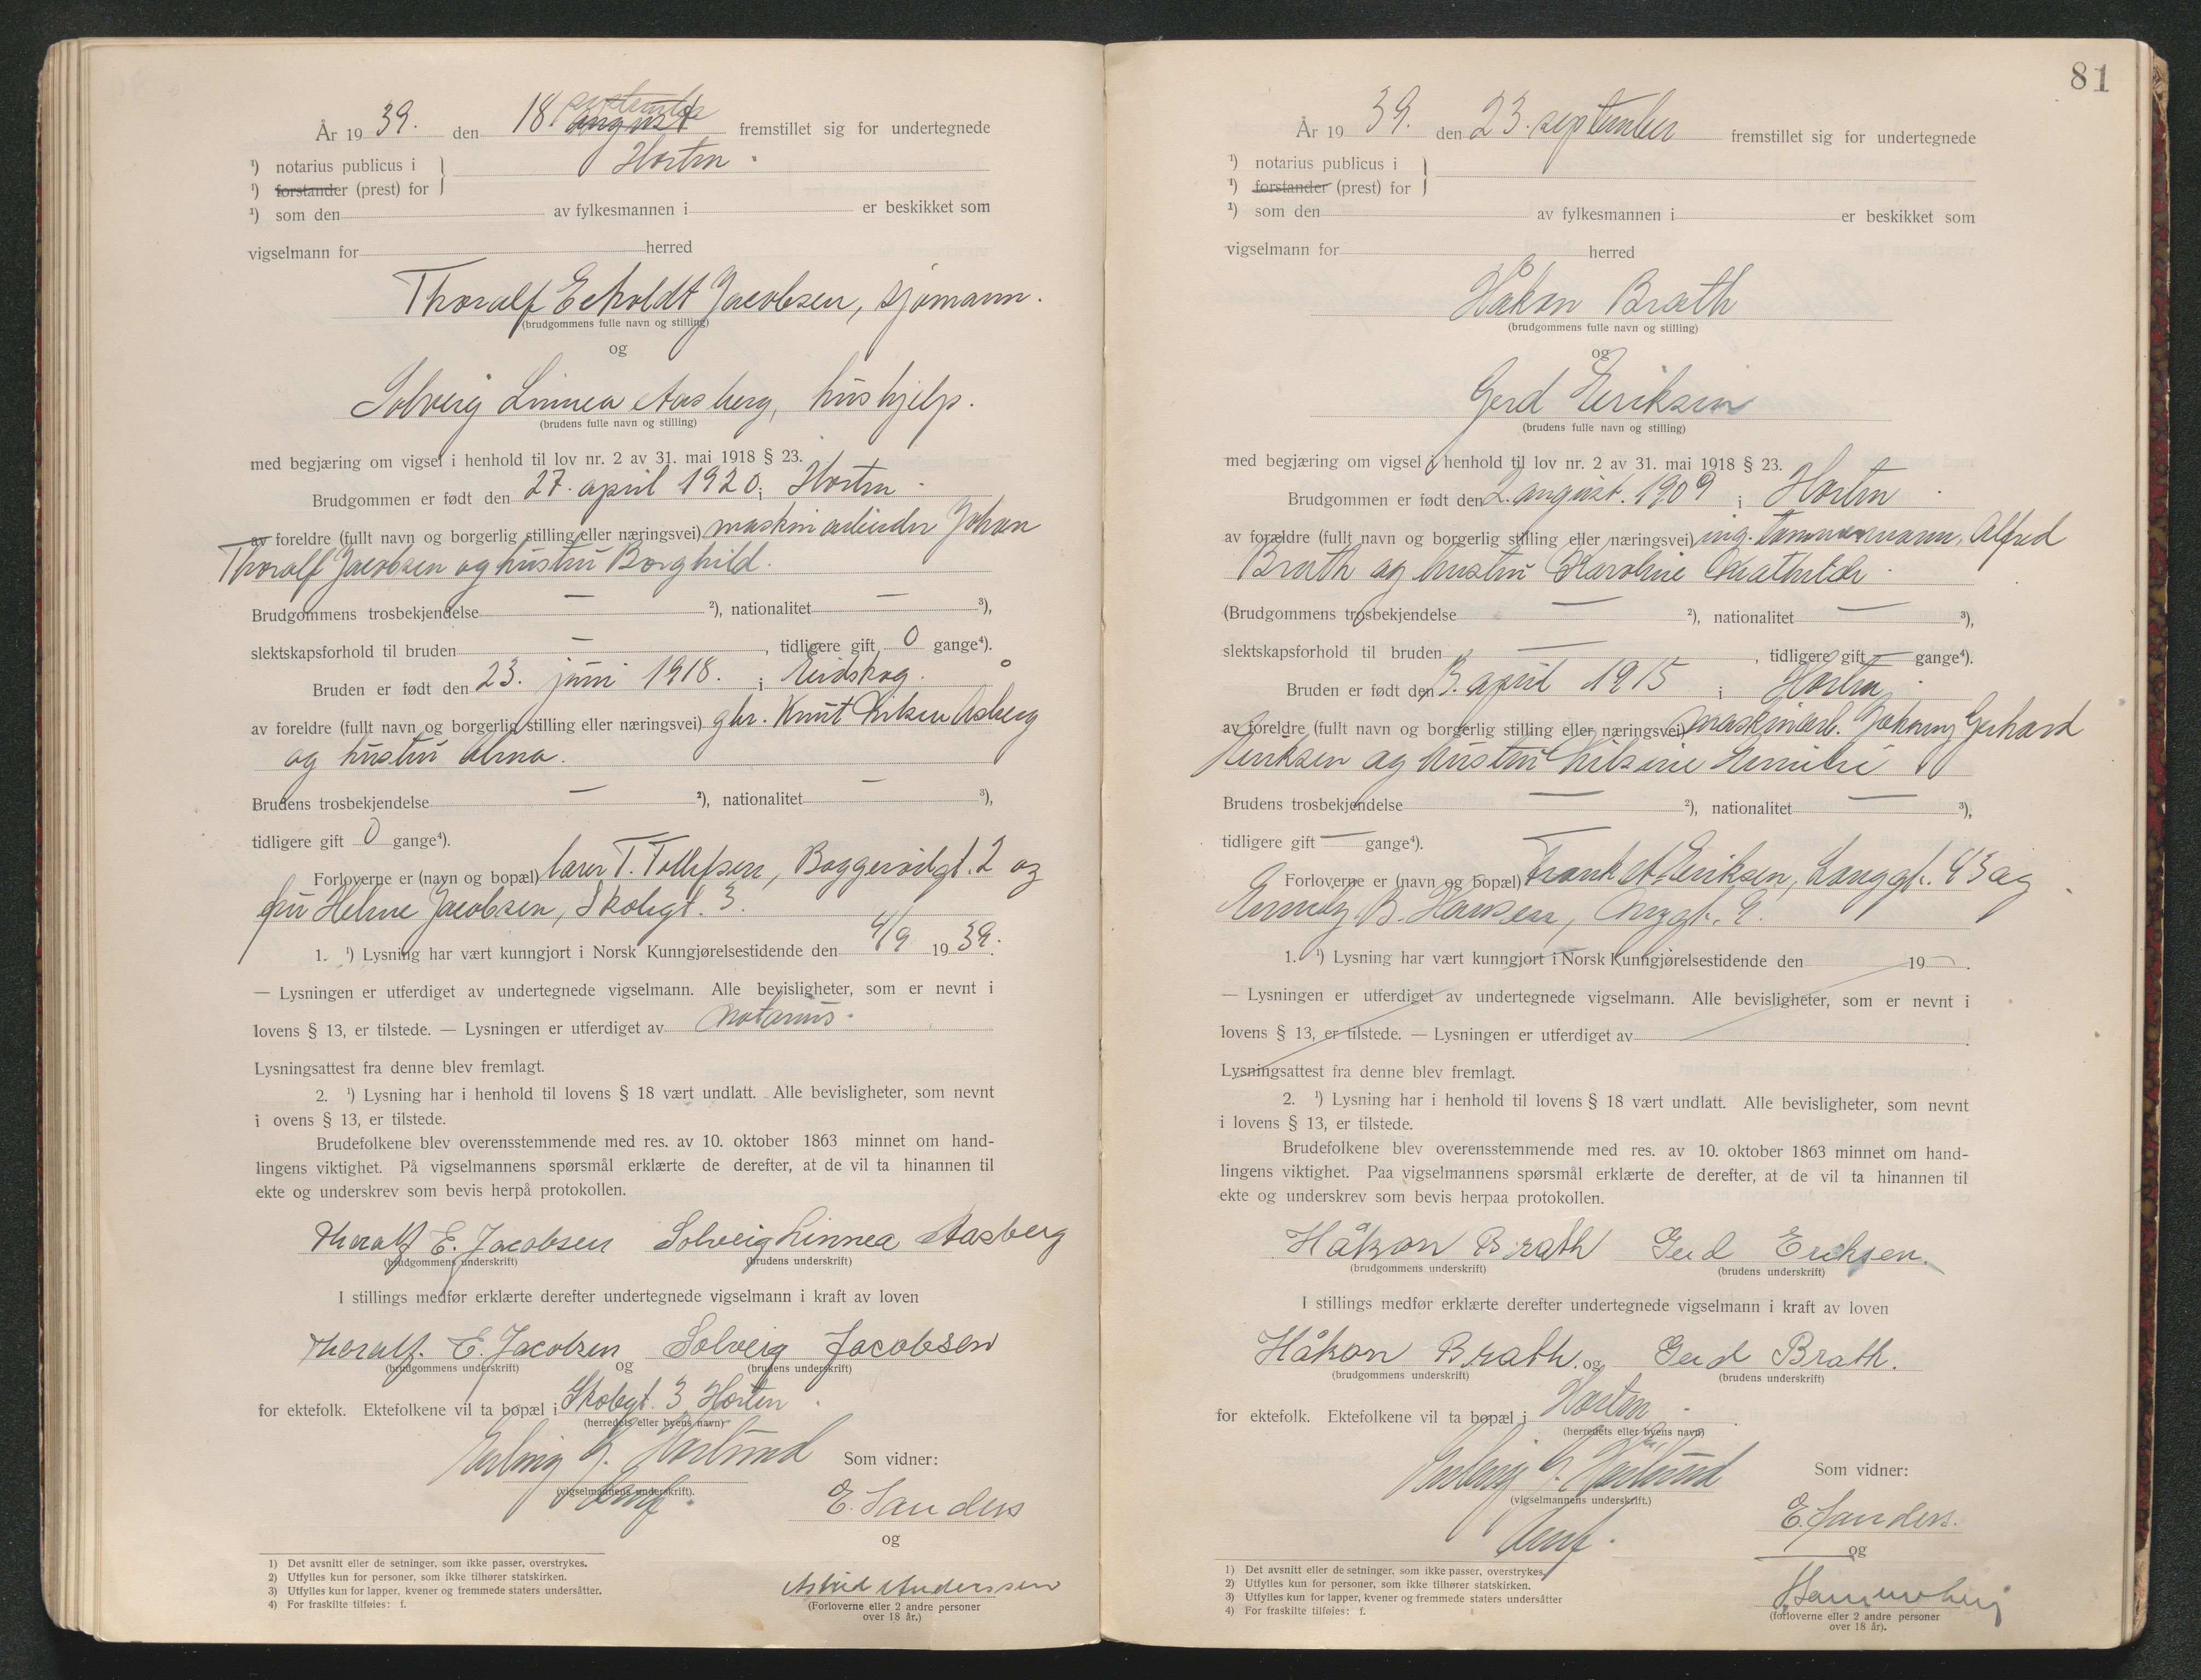 År 19 39. den 18 august september fremstillet sig for undertegnede
¹) notarius publicus i Horten.
¹) forstander (prest) for
¹) som den av fylkesmannen i er beskikket som
vigselmann for herred
Thoralf Echoldt Jacobsen, sjømann.
(brudgommens fulle navn og stilling)
og
Solveig Linnea Aasberg, hushjelp.
(brudens fulle navn og stilling)
med begjæring om vigsel i henhold til lov nr. 2 av 31. mai 1918 § 23.
Brudgommen er født den 27. april 1920 i Horten.
av foreldre (fullt navn og borgerlig stilling eller næringsvei) maskinarbeider Johan
Thoralf Jacobsen og hustru Borghild.
Brudgommens trosbekjendelse — ²), nationalitet — ³),
slektskapsforhold til bruden — , tidligere gift 0 gange⁴).
Bruden er født den 23. juni 1918. i Eidskog.
av foreldre (fullt navn og borgerlig stilling eller næringsvei) gbr. Knut Åsberg
og hustru Alma.
Brudens trosbekjendelse — ²), nationalitet — ³),
tidligere gift 0 gange⁴).
Forloverne er (navn og bopæl) lærer T. Tollefsen, Baggerødgt. 2 og
fru Helene Jacobsen, Skolegt. 3.
1. ¹) Lysning har vært kunngjort i Norsk Kunngjørelsestidende den 4/9 19 39.
— Lysningen er utferdiget av undertegnede vigselmann. Alle bevisligheter, som er nevnt i
lovens § 13, er tilstede. — Lysningen er utferdiget av Notarius.
Lysningsattest fra denne blev fremlagt.
2. ¹) Lysning har i henhold til lovens § 18 vært undlatt. Alle bevisligheter, som nevnt
i ovens § 13, er tilstede.
Brudefolkene blev overensstemmende med res. av 10. oktober 1863 minnet om hand-
lingens viktighet. På vigselmannens spørsmål erklærte de derefter, at de vil ta hinannen til
ekte og underskrev som bevis herpå protokollen.
Thoralf E. Jacobsen Solveig Linnea Aasberg
(brudgommens underskrift) (brudens underskrift)
I stillings medfør erklærte derefter undertegnede vigselmann i kraft av loven
Thoralf. E. Jacobsen og Solveig Jacobsen
(brudgommens underskrift) (brudens underskrift)
for ektefolk. Ektefolkene vil ta bopæl i Skolegt. 3 Horten.
(herredets eller byens navn)
Erling G. Haslund
Som vidner:
(vigselmannens underskrift).
E. Sanders
og
Astrid Anderssen
(Forloverne eller 2 andre personer
over 18 år.)
1) Det avsnitt eller de setninger, som ikke passer, overstrykes.
2) Utfylles kun for personer, som ikke tilhører statskirken.
3) Utfylles kun for lapper, kvener og fremmede staters undersåtter.
4) For fraskilte tilføies: f.
81
År 19 39. den 23. september fremstillet sig for undertegnede
¹) notarius publicus i
¹) forstander (prest) for
¹) som den av fylkesmannen i er beskikket som
vigselmann for herred
Håkon Brath
(brudgommens fulle navn og stilling)
og
Gerd Eriksen
(brudens fulle navn og stilling)
med begjæring om vigsel i henhold til lov nr. 2 av 31. mai 1918 § 23.
Brudgommen er født den 2. august. 1909 i Horten.
av forældre (fullt navn og borgerlig stilling eller næringsvei) tømmermann, Alfred
Brath og hustru Karoline Mathilde.
(Brudgommens trosbekjendelse — ²), nationalitet — ³),
slektskapsforhold til bruden — , tidligere gift — gange⁴).
Bruden er født den 3. april 1915 i Horten.
av foreldre (fullt navn og borgerlig stilling eller næringsvei) maskinarb. Johnny Gerhard
Eriksen og hustru Nilsine
Brudens trosbekjendelse — ²), nationalitet — ³),
tidligere gift — gange⁴).
Forloverne er (navn og bopæl) Frank A. Eriksen, Langgt. 43 og
B. Hansen, 9.
1. ¹) Lysning har vært kunngjort i Norsk Kunngjørelsestidende den 19 — .
— Lysningen er utferdiget av undertegnede vigselmann. Alle bevisligheter, som er nevnt i
lovens § 13, er tilstede. — Lysningen er utferdiget av
Lysningsattest fra denne blev fremlagt.
2. ¹) Lysning har i henhold til lovens § 18 vært undlatt. Alle bevisligheter, som nevnt
i lovens § 13, er tilstede.
Brudefolkene blev overensstemmende med res. av 10. oktober 1863 minnet om hand-
lingens viktighet. Paa vigselmannens spørsmål erklærte de derefter, at de vil ta hinannen til
ekte og underskrev som bevis herpaa protokollen.
Håkon Brath Gerd Eriksen.
(brudgommens underskrift) (brudens underskrift)
I stillings medfør erklærte derefter undertegnede vigselmann i kraft av loven
Håkon Brath. og Gerd Brath.
(brudgommens underskrift) (brudens underskrift)
for ektefolk. Ektefolkene vil ta bopæl i Horten.
(herredets eller byens navn)
Erling G. Haslund
Som vidner:
(vigselmannens underskrift.)
E. Sanders.
og
(forloverne eller 2 andre personer
over 18 år).
1) Det avsnitt eller de setninger, som ikke passer, overstrykes.
2) Utfylles kun for personer, som ikke tilhører statskirken.
3) Utfylles kun for lapper, kvener og fremmede staters undersåtter
4) For fraskilte tilføies: f.